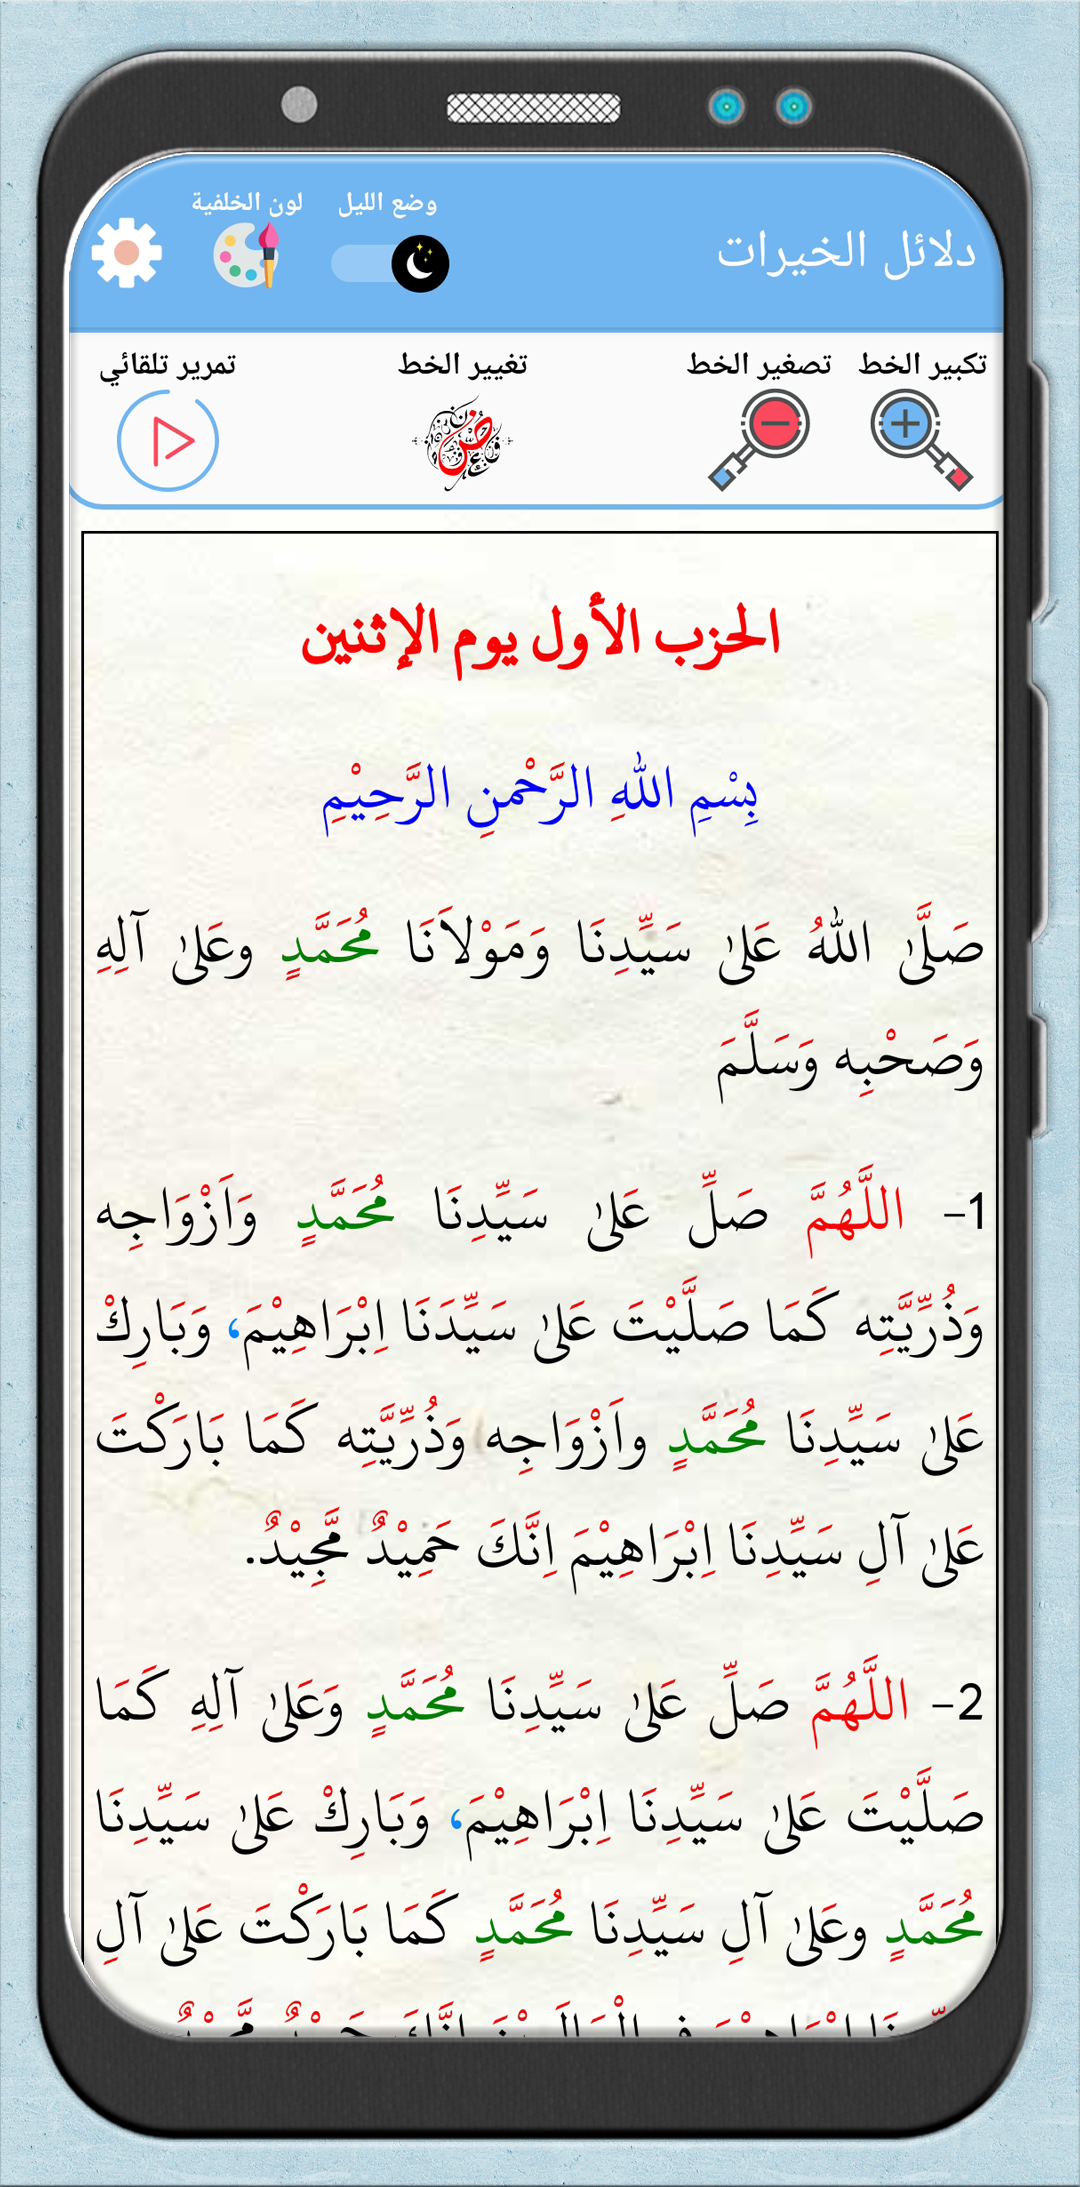 وضع الليل
لون الخلفية
دلائل الخيرات
تكبير الخط
تصغير الخط
تغيير الخط
تمرير تلقائي
الحزب الأول يوم الإثنين
بِسْمِ اللهِ الرَّحْمنِ الرَّحِيْمِ
صَلَّىٰ اللهُ عَلىٰ سَيِّدِنَا وَمَوْلاَنَا مُحَمَّدٍ وعَلىٰ آلِهِ
وَصَحْبِه وَسَلَّمَ
1- اللَّهُمَّ صَلِّ عَلىٰ سَيِّدِنَا مُحَمَّدٍ وَاَزْوَاجِه
وَذُرِّيَّتِه كَمَا صَلَّيْتَ عَلىٰ سَيِّدَنَا اِبْرَاهِيْمَ، وَبَارِكْ
عَلىٰ سَيِّدِنَا مُحَمَّدٍ واَزْوَاجِه وَذُرِّيَّتِه كَمَا بَارَكْتَ
عَلىٰ آلِ سَيِّدِنَا اِبْرَاهِيْمَ اِنَّكَ حَمِيْدٌ مَّجِيْدٌ.
2- اللَّهُمَّ صَلِّ عَلىٰ سَيِّدِنَا مُحَمَّدٍ وَعَلىٰ آلِهِ كَمَا
صَلَّيْتَ عَلىٰ سَيِّدِنَا اِبْرَاهِيْمَ، وَبَارِكْ عَلىٰ سَيِّدِنَا
مُحَمَّدٍ وعَلىٰ آلِ سَيِّدِنَا مُحَمَّدٍ كَمَا بَارَكْتَ عَلىٰ آلِ